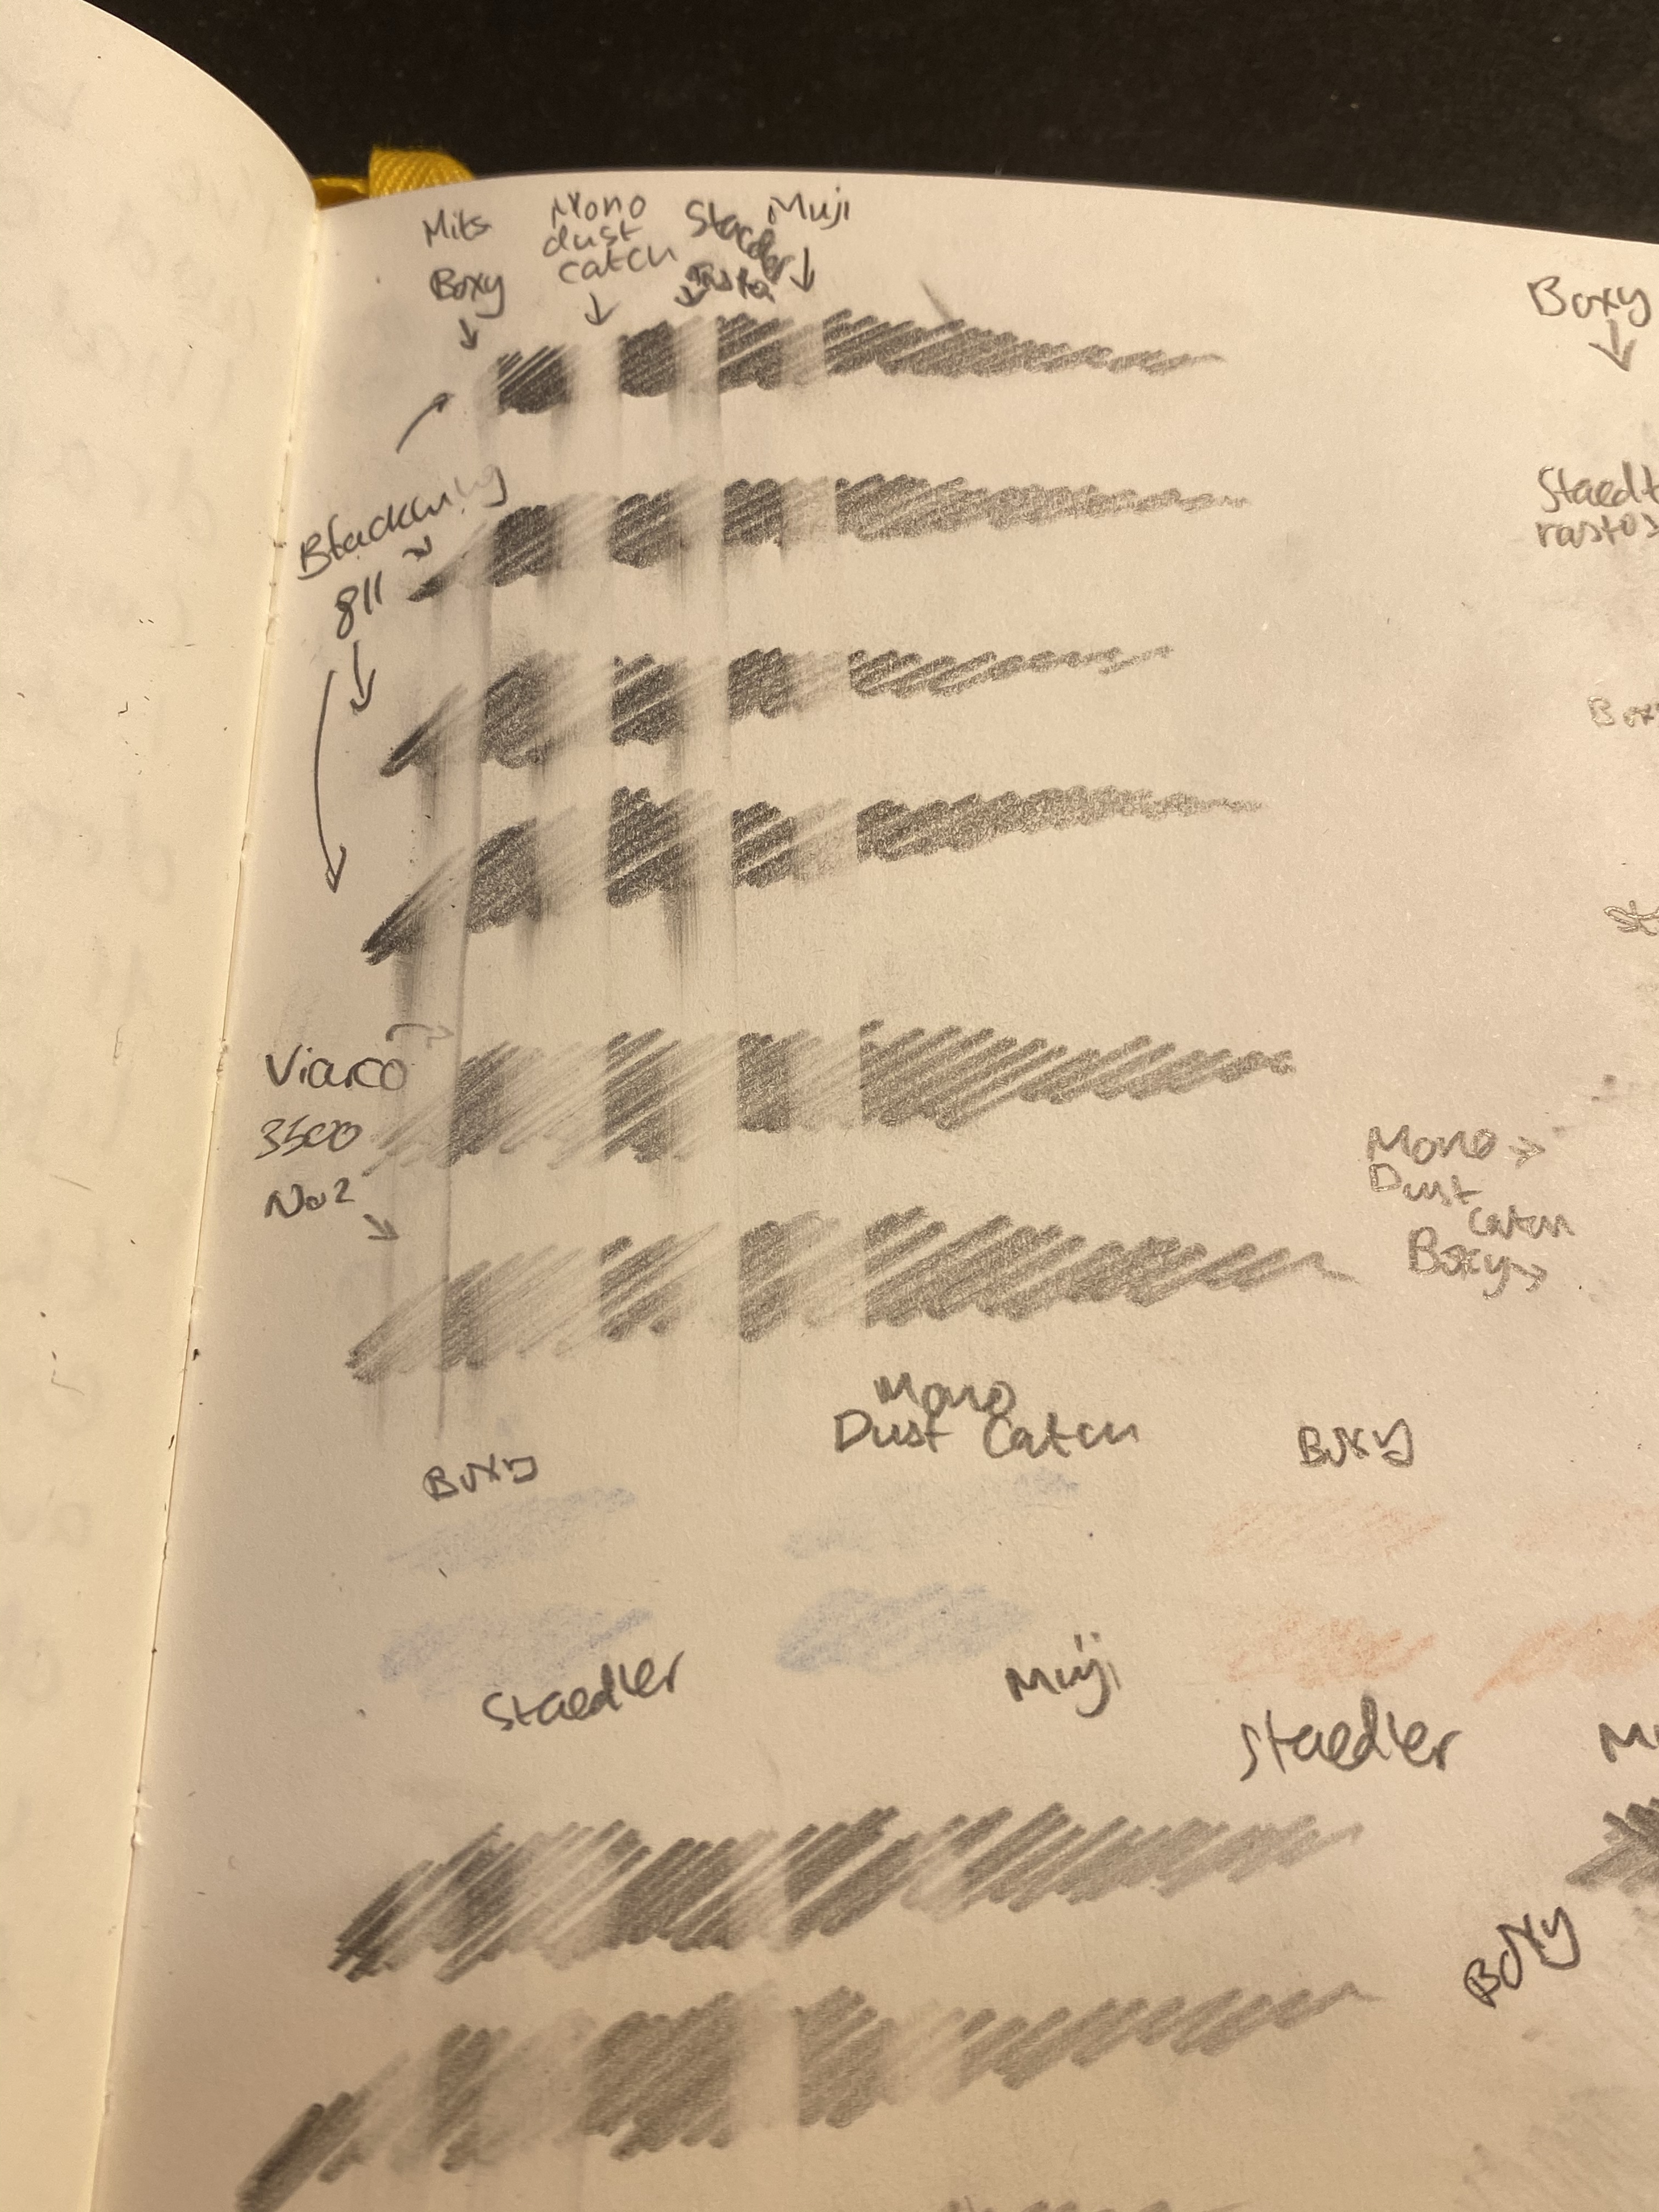 Mits
Boxy
Mono
dust
catch
Staedler
Muji
Boxy
Blackwing
811
Staedt
Boxy
Viarco
3500
No 2
Mono
Dust
catch
Boxy
Mono
Dust Catch
Boxy
Boxy
Staedler
Muji
Staedler
Boxy